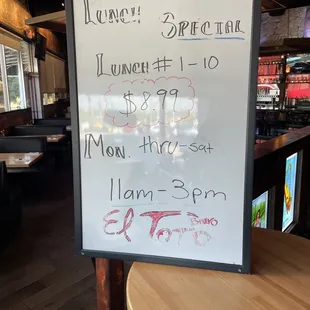 Lunch Special
Lunch # 1-10
$8.99
Mon. thru-sat
11am-3pm
El Toro Bravo